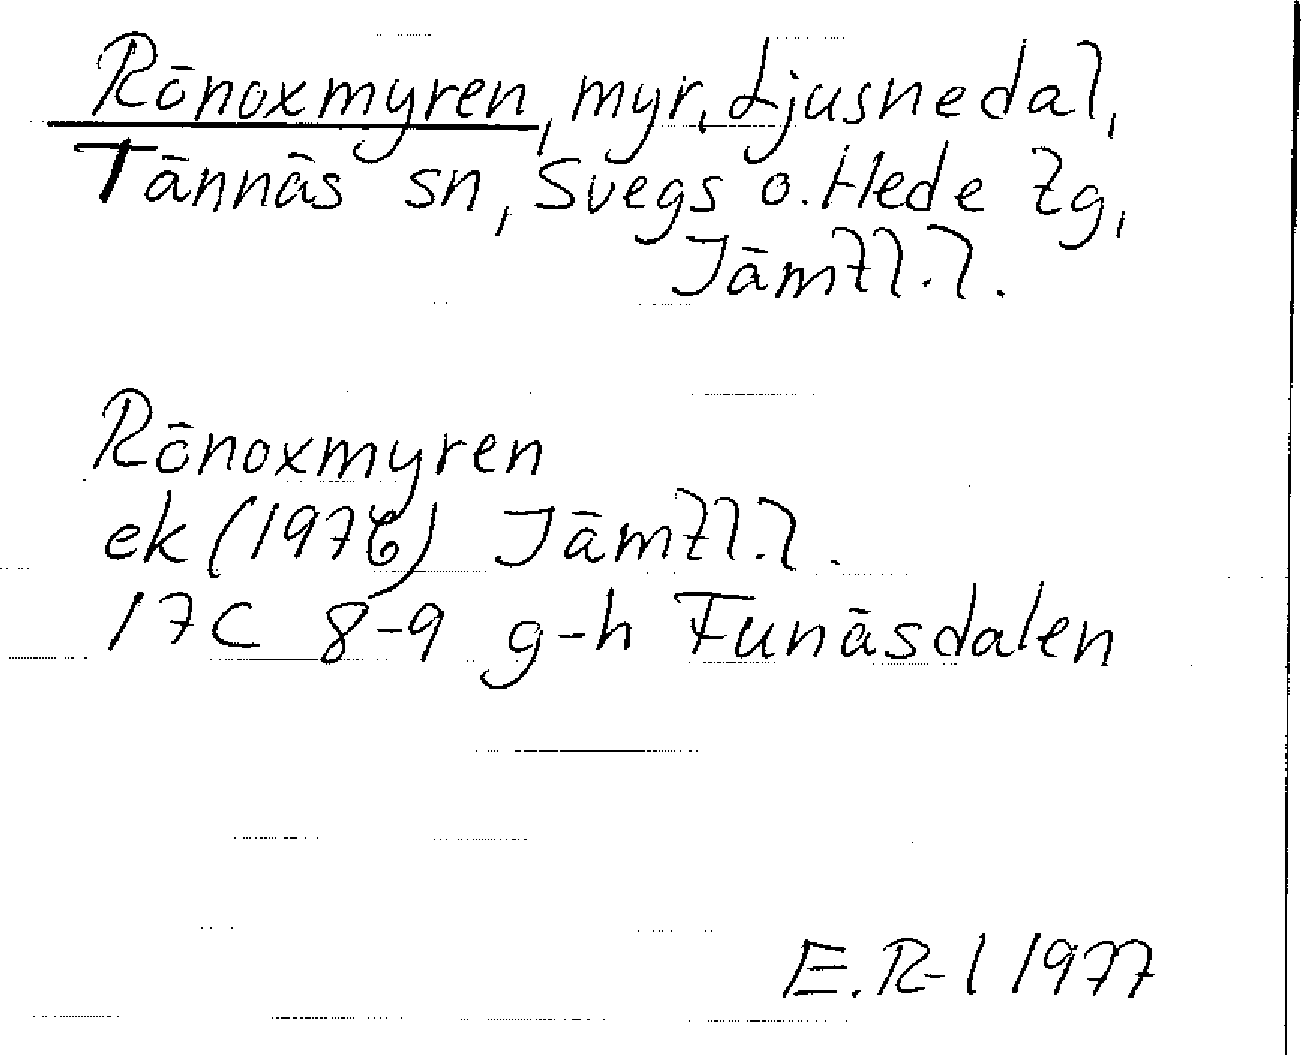 Rönoxmyren, myr, Ljusnedal,
Tännäs sn, Svegs o. Hede tg,
Jämtl. l.
Rönoxmyren
ek (1976) Jämtl. l.
17C 8-9 g-h Funäsdalen
E. R-l 1977